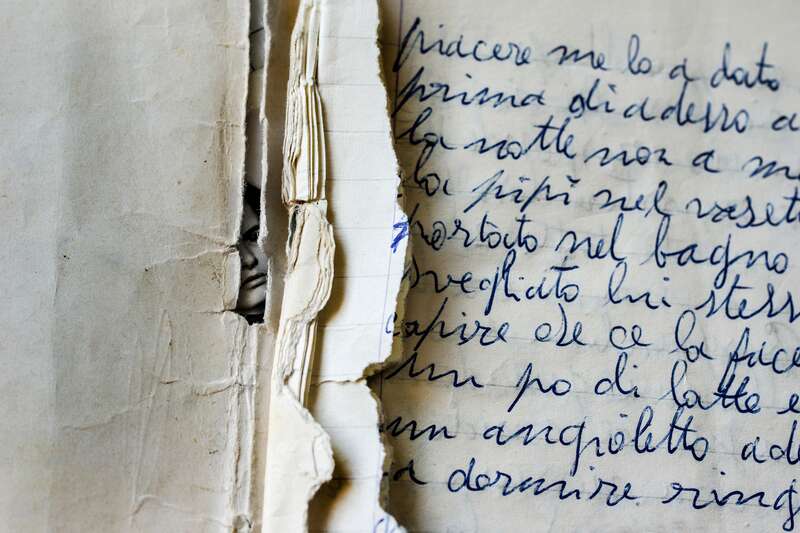 piacere me lo a dato
prima di adesso a
la notte non a m
la pipì nel vaset
portato nel bagno
svegliato lui stess
capire che ce la face
un po di latte e
un angioletto ad
a dormire ring